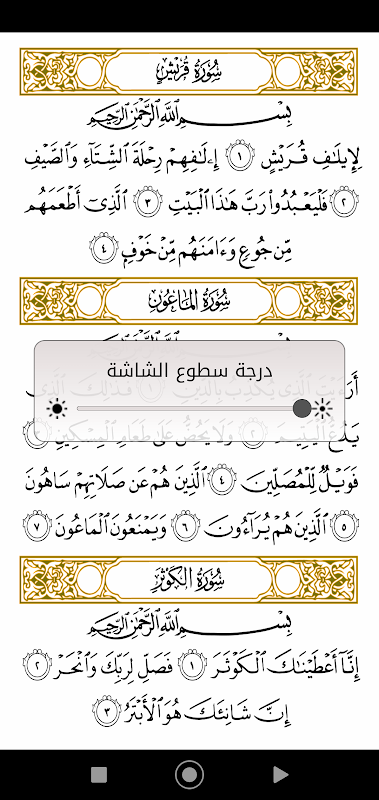 سُورَةُ قُرَيْشٍ
بِسْمِ ٱللَّهِ ٱلرَّحْمَٰنِ ٱلرَّحِيمِ
لِإِيلَٰفِ قُرَيْشٍ ١ إِۦلَٰفِهِمْ رِحْلَةَ ٱلشِّتَآءِ وَٱلصَّيْفِ
٢ فَلْيَعْبُدُوا۟ رَبَّ هَٰذَا ٱلْبَيْتِ ٣ ٱلَّذِىٓ أَطْعَمَهُم
مِّن جُوعٍ وَءَامَنَهُم مِّنْ خَوْفٍۭ ٤
سُورَةُ المَاعُونِ
درجة سطوع الشاشة
أَرَءَيْتَ ٱلَّذِى يُكَذِّبُ بِٱلدِّينِ ١ فَذَٰلِكَ ٱلَّذِى
يَدُعُّ ٱلْيَتِيمَ ٢ وَلَا يَحُضُّ عَلَىٰ طَعَامِ ٱلْمِسْكِينِ ٣
فَوَيْلٌ لِّلْمُصَلِّينَ ٤ ٱلَّذِينَ هُمْ عَن صَلَاتِهِمْ سَاهُونَ
٥ ٱلَّذِينَ هُمْ يُرَآءُونَ ٦ وَيَمْنَعُونَ ٱلْمَاعُونَ ٧
سُورَةُ الكَوْثَرِ
بِسْمِ ٱللَّهِ ٱلرَّحْمَٰنِ ٱلرَّحِيمِ
إِنَّآ أَعْطَيْنَٰكَ ٱلْكَوْثَرَ ١ فَصَلِّ لِرَبِّكَ وَٱنْحَرْ ٢
إِنَّ شَانِئَكَ هُوَ ٱلْأَبْتَرُ ٣